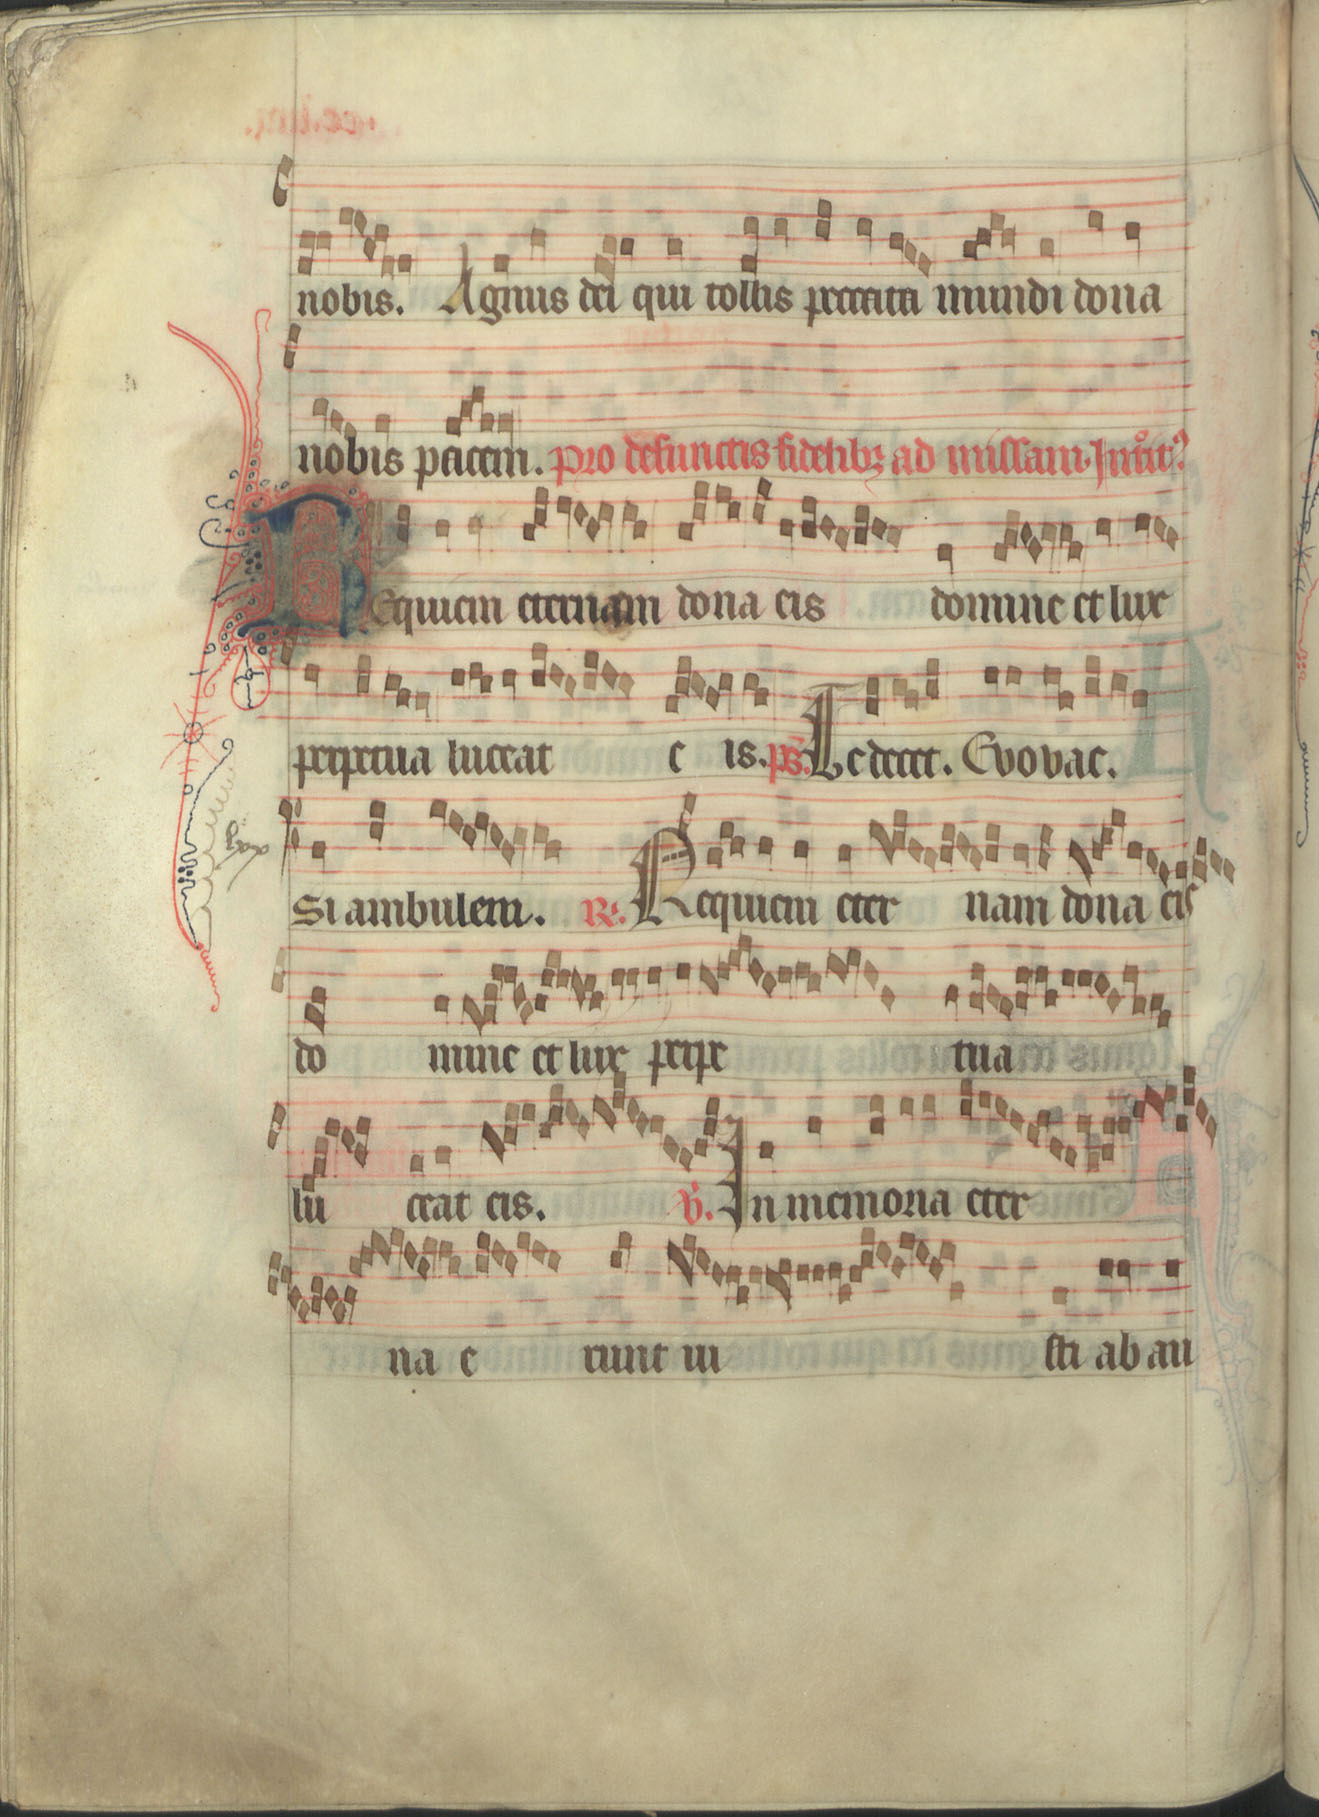 nobis. Agnus dei qui tollis peccata mundi dona
nobis pacem. Pro defunctis fidelibꝫ ad missam. Introit⁹
REquiem eternam dona eis domine et lux
perpetua luceat e is. ps. Te decet. Evovae.
Si ambulem. R. Requiem eter nam dona eis
do mine et lux perpe tua
lu ceat eis. V. In memoria eter
na e runt iu sti ab au